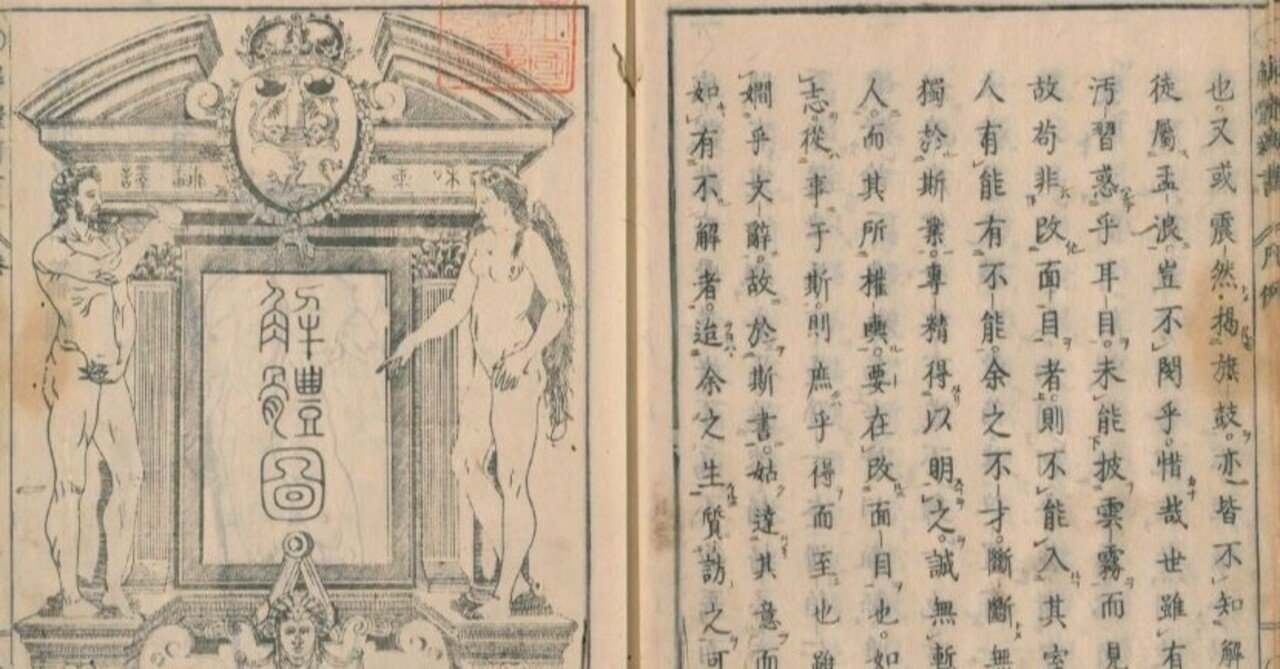 也。又或震然、揭旗鼓。亦皆不知解
徒屬孟浪。豈不閔乎。惜哉世雖有
汚習惑乎耳目。未能披雲霧而見
故苟非改面目者。則不能入其室
人有能有不能。余之不才。斷斷無
獨於斯業。專精得以明之。誠無慙
人。而其所權輿。要在改面目也。如
志從事于斯。則庶乎得而至也雖
嫻乎文辭。故於斯書。姑達其意而
如有不解者。迨余之生質訪之可
解體圖